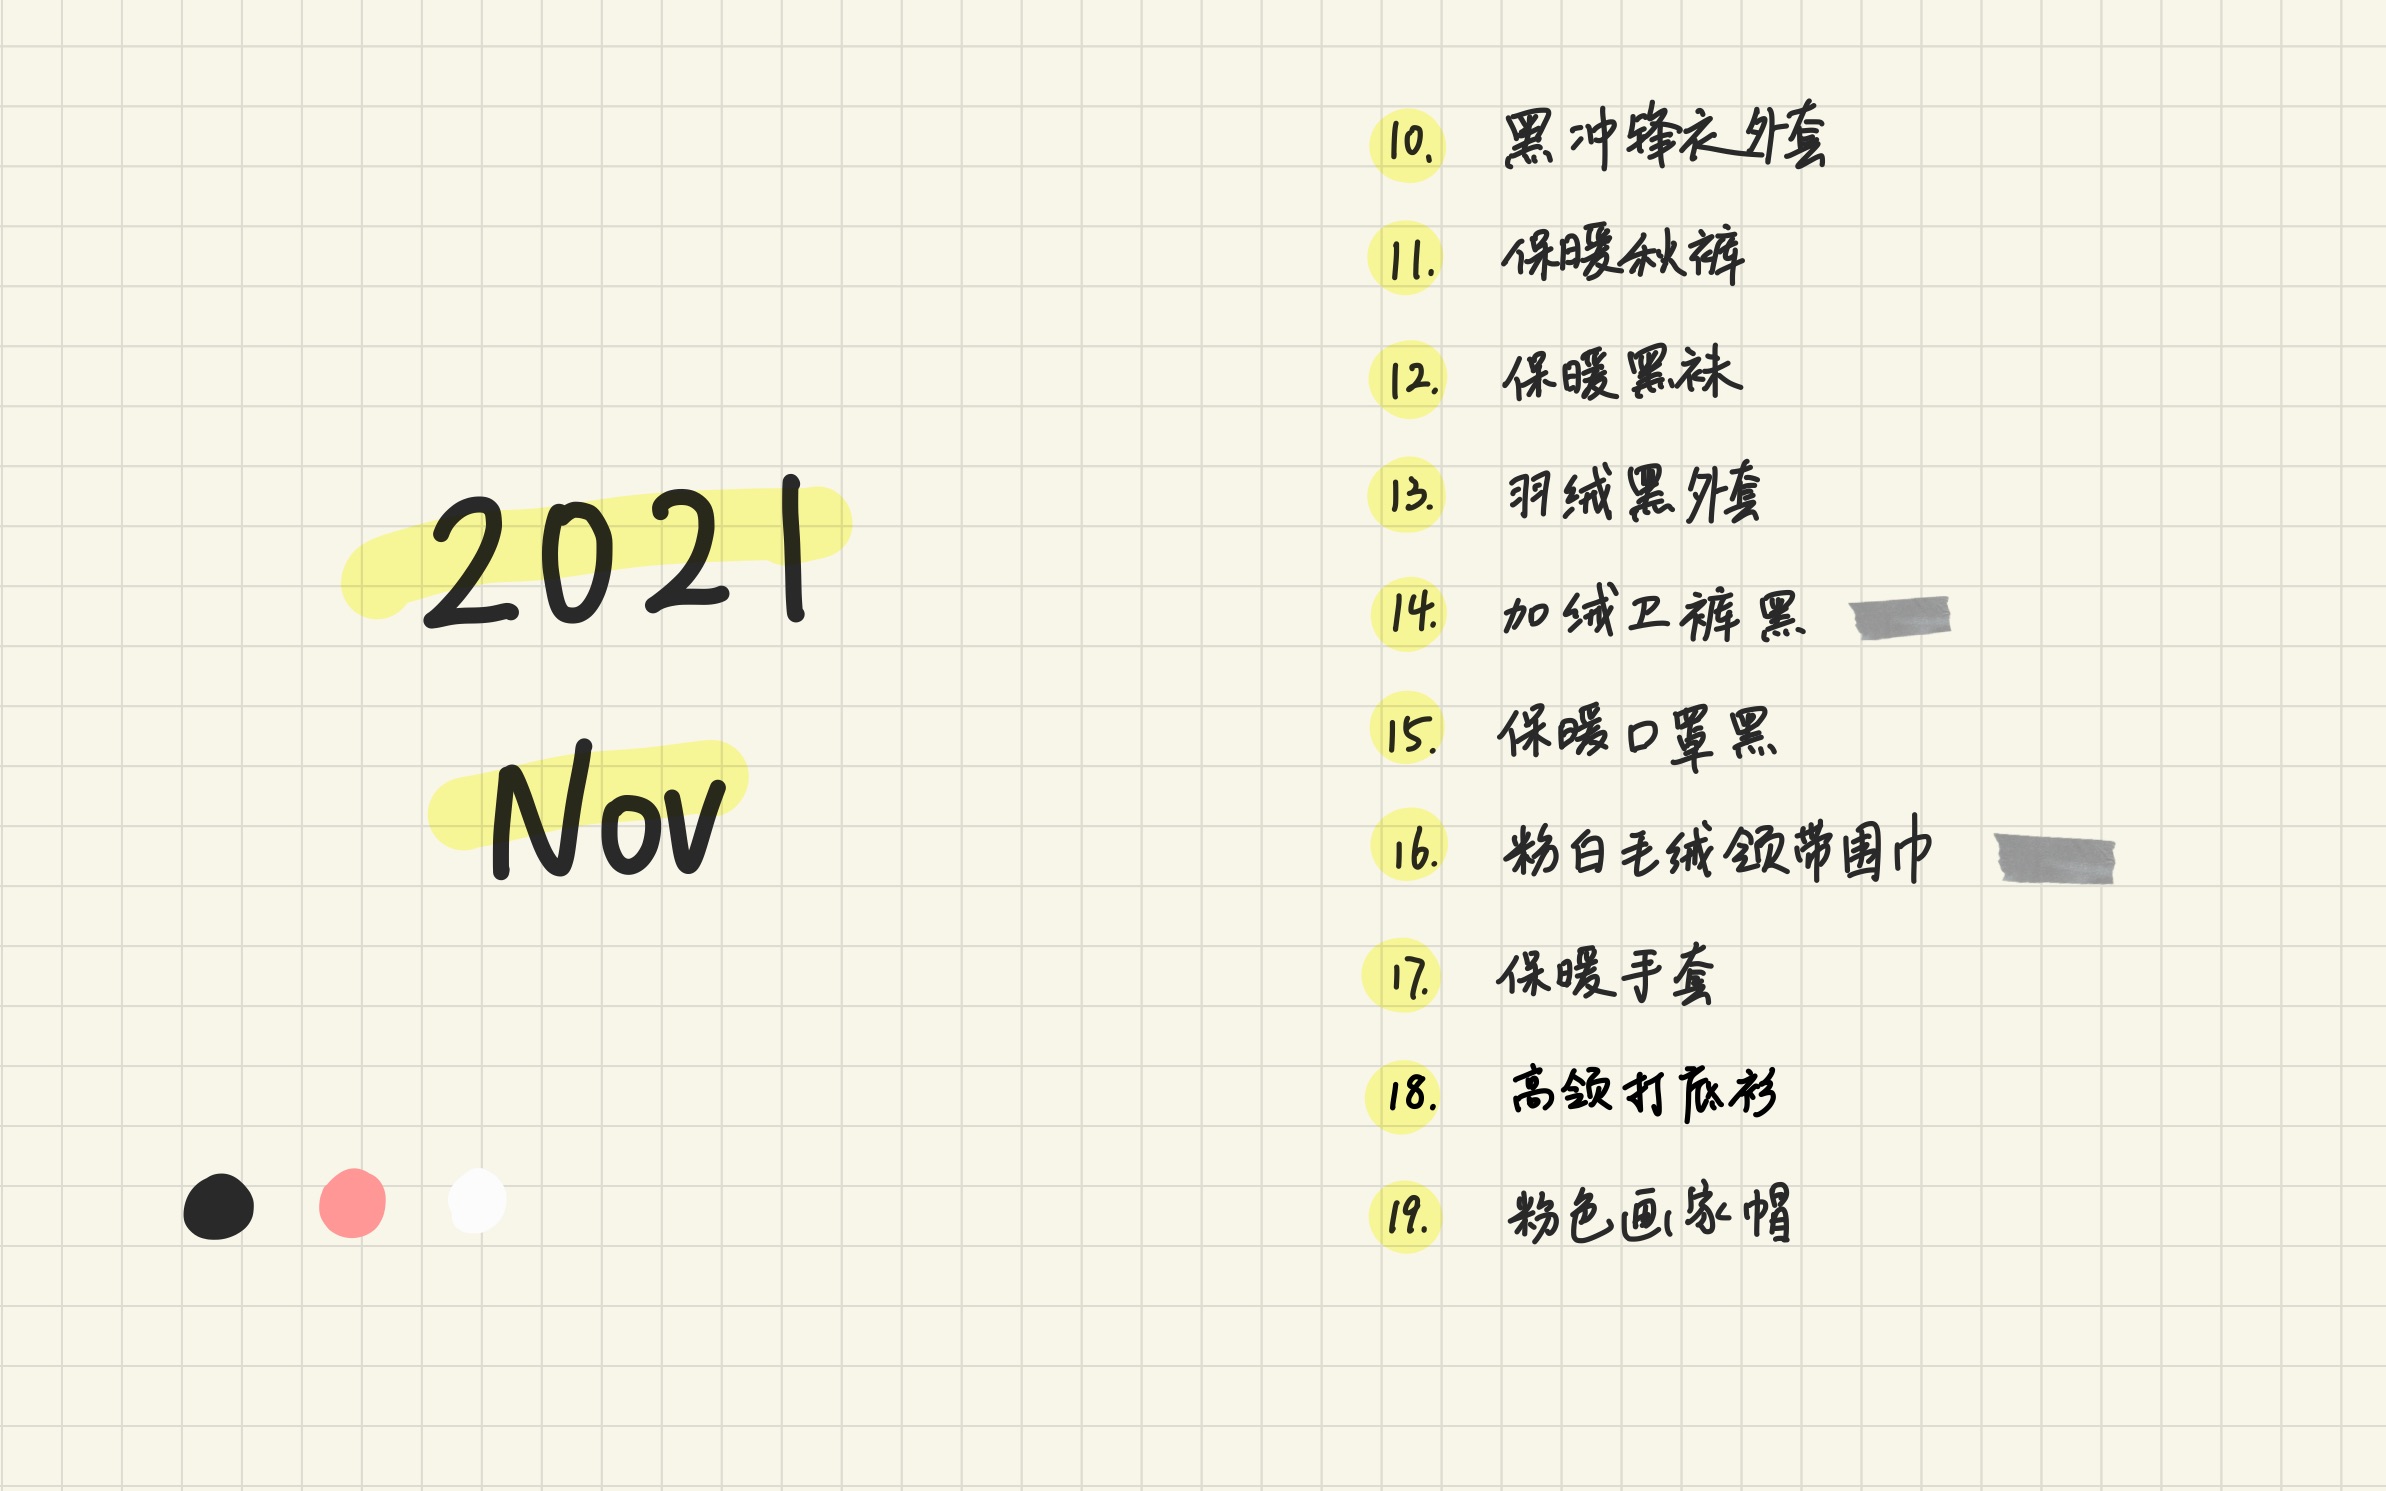 2021
Nov
10. 黑冲锋衣外套
11. 保暖秋裤
12. 保暖黑袜
13. 羽绒黑外套
14. 加绒卫裤黑
15. 保暖口罩黑
16. 粉白毛绒领带围巾
17. 保暖手套
18. 高领打底衫
19. 粉色画家帽